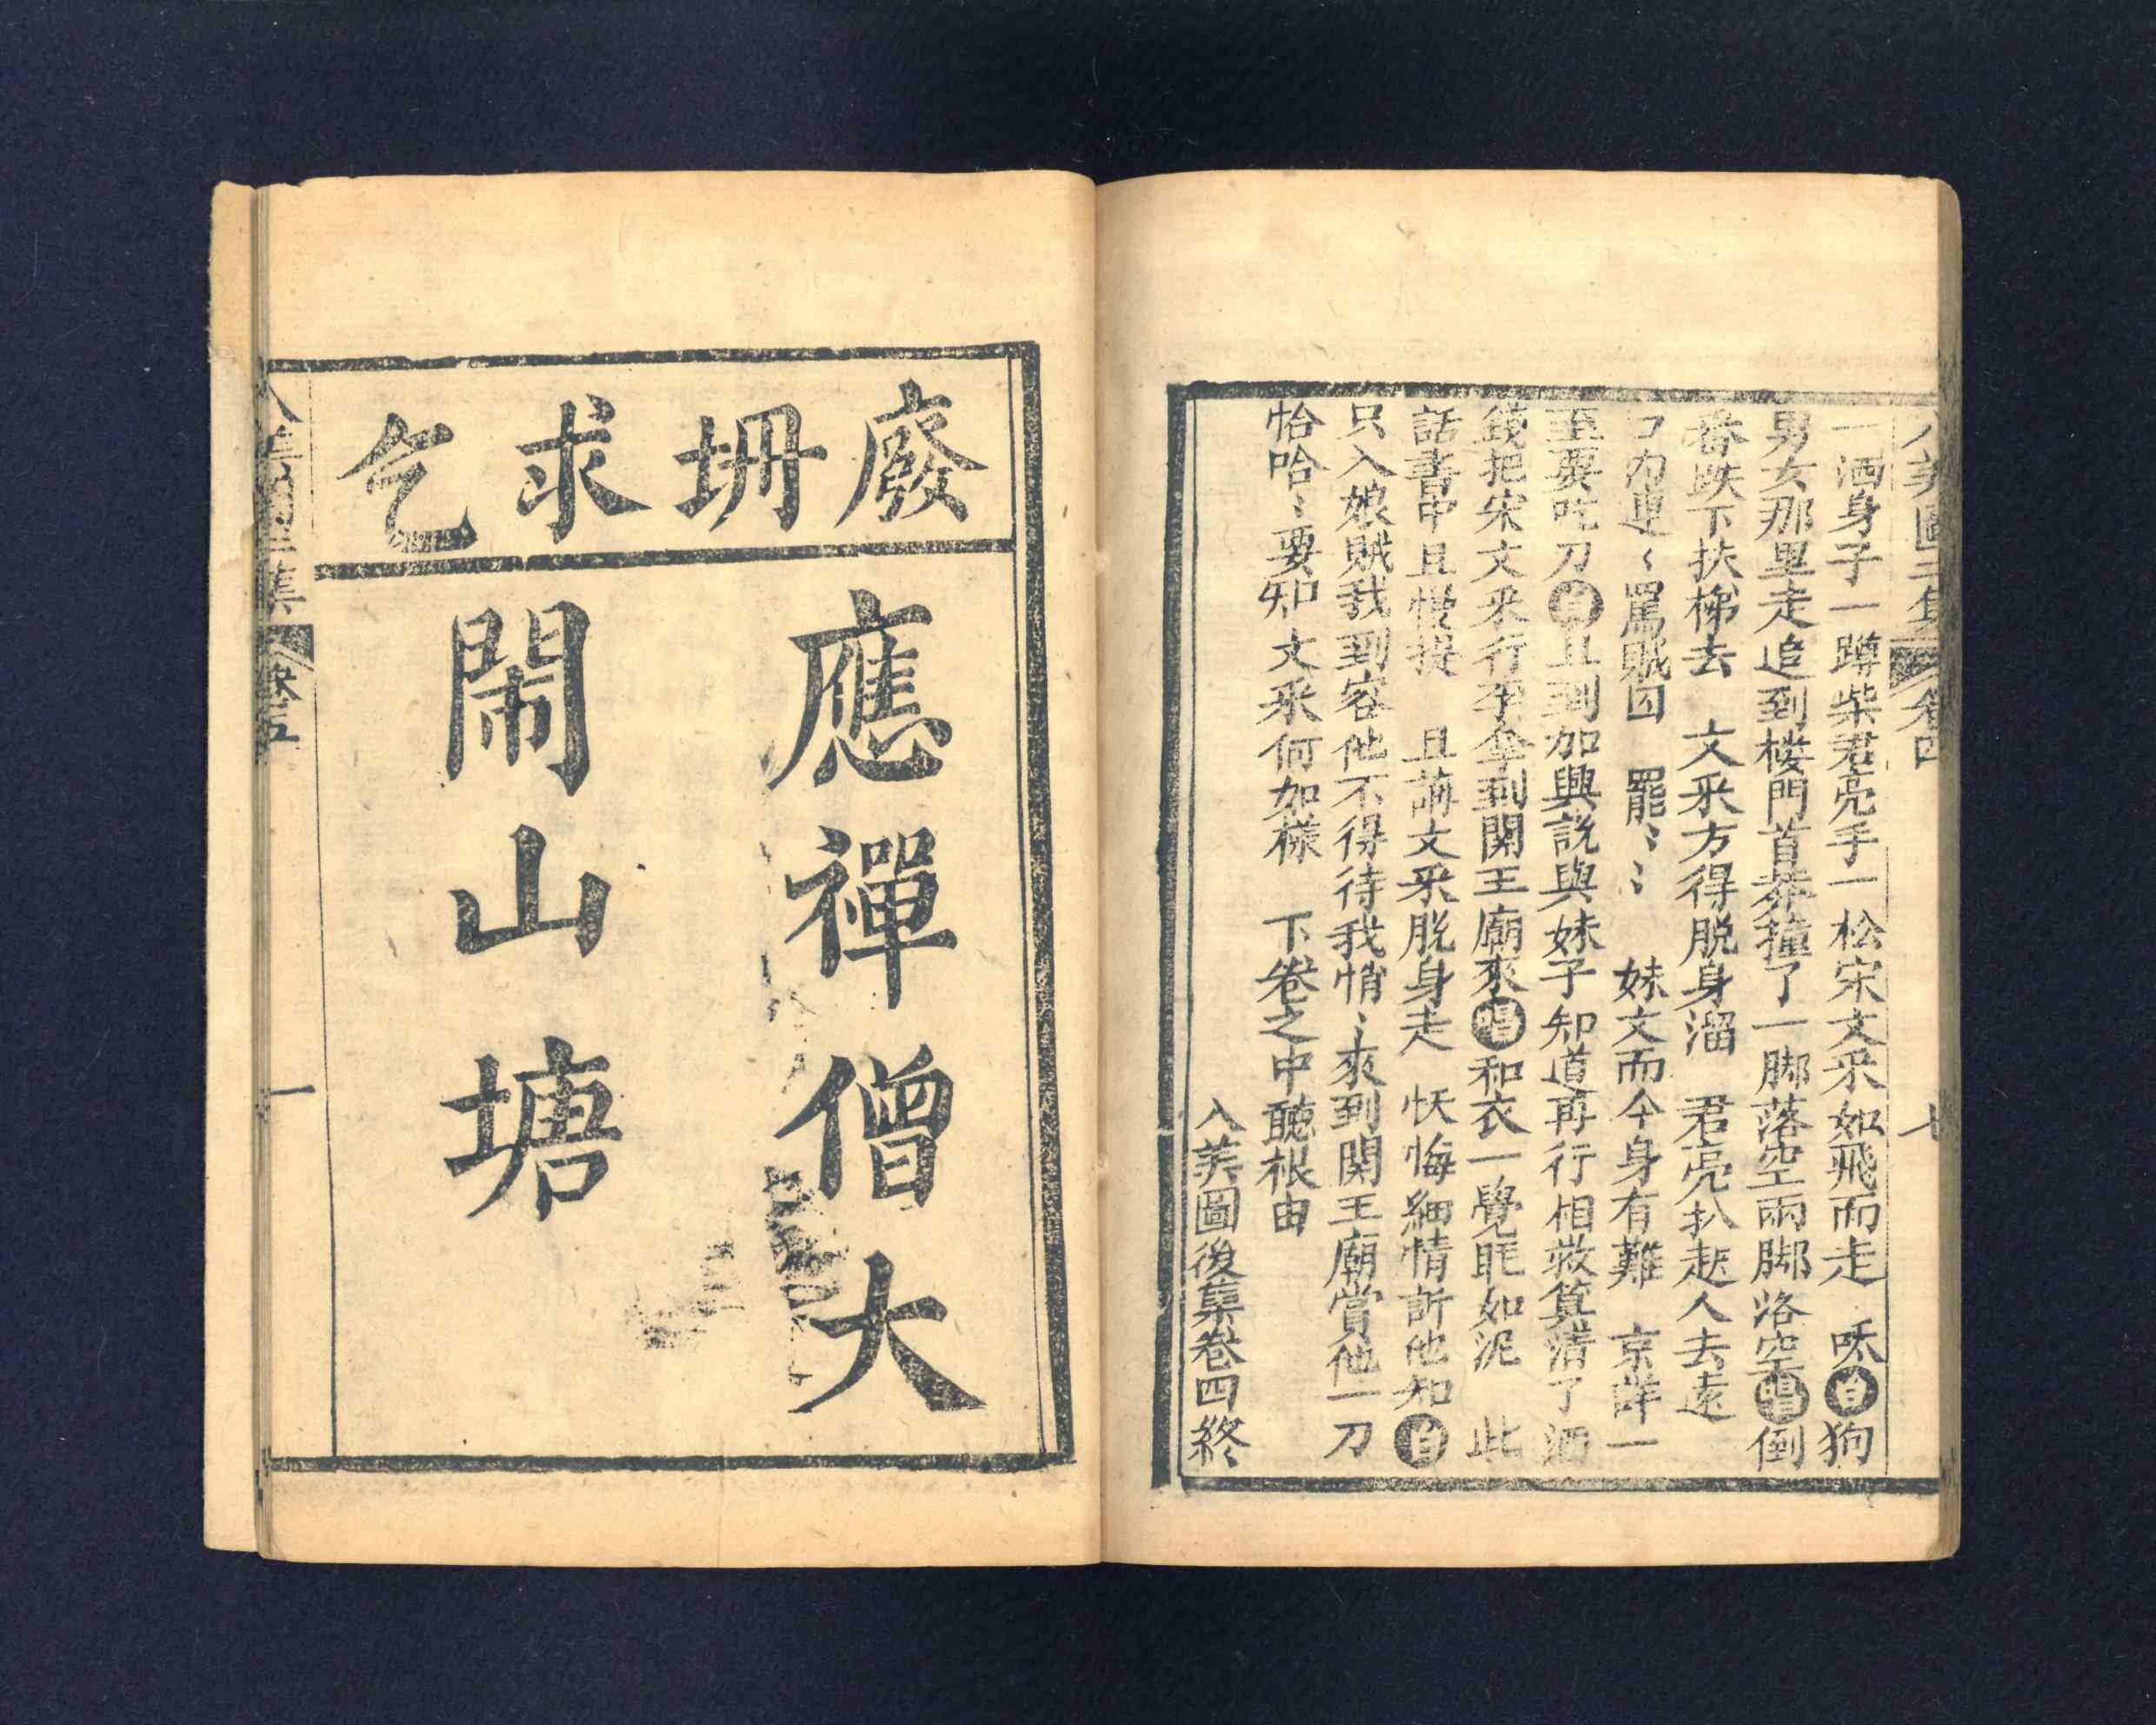 一洒身子一蹲柴君亮手一松宋文采如飛而走 呔白狗
男女那里走追到楼門首恭撞了一脚落空兩脚洛空唱倒
番跌下扶梯去 文采方得脱身溜 君亮扒起人去遠
口內連〻罵賊囚 罷〻〻 妹文而今身有難 京詳一
至要吃刀白且到加興説與妹子知道再行相救算清了酒
錢把宋文采行李拿到関王廟來唱和衣一覺眠如泥 此
話書中且慢提 且講文采脱身走 忺悔細情訴他知白
只入娘賊我到容他不得待我悄〻來到関王廟賞他一刀
恰哈〻要知文采何如樣 下卷之中聽根由
八美圖後集卷四終
廢坍求乞
應禪僧大
鬧山塘
一